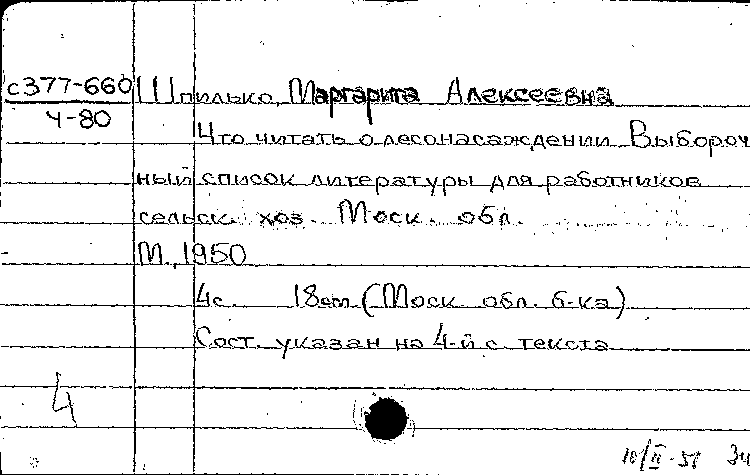 с377-660 Шпилько, Маргарита Алексеевна
4-80
Что читать о лесонасаждении. Выбороч
ный список литературы для работников
сельск. хоз. Моск. обл.
М., 1950
4с. 18см (Моск. обл. б-ка)
Сост. указан на 4-й с. текста
4
10/II-51 34